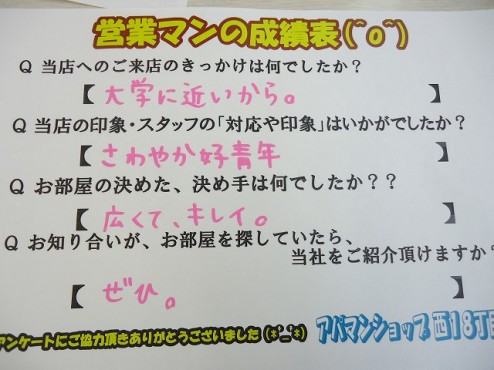 営業マンの成績表(^o^)
Q 当店へのご来店のきっかけは何でしたか？
【大学に近いから。】
Q 当店の印象・スタッフの「対応や印象」はいかがでしたか？
【さわやか好青年】
Q お部屋の決めた、決め手は何でしたか？？
【広くて、キレイ。】
Q お知り合いが、お部屋を探していたら、
当社をご紹介頂けますか？
【ぜひ。】
アンケートにご協力頂きありがとうございました(*'_'*)
アパマンショップ西18丁目